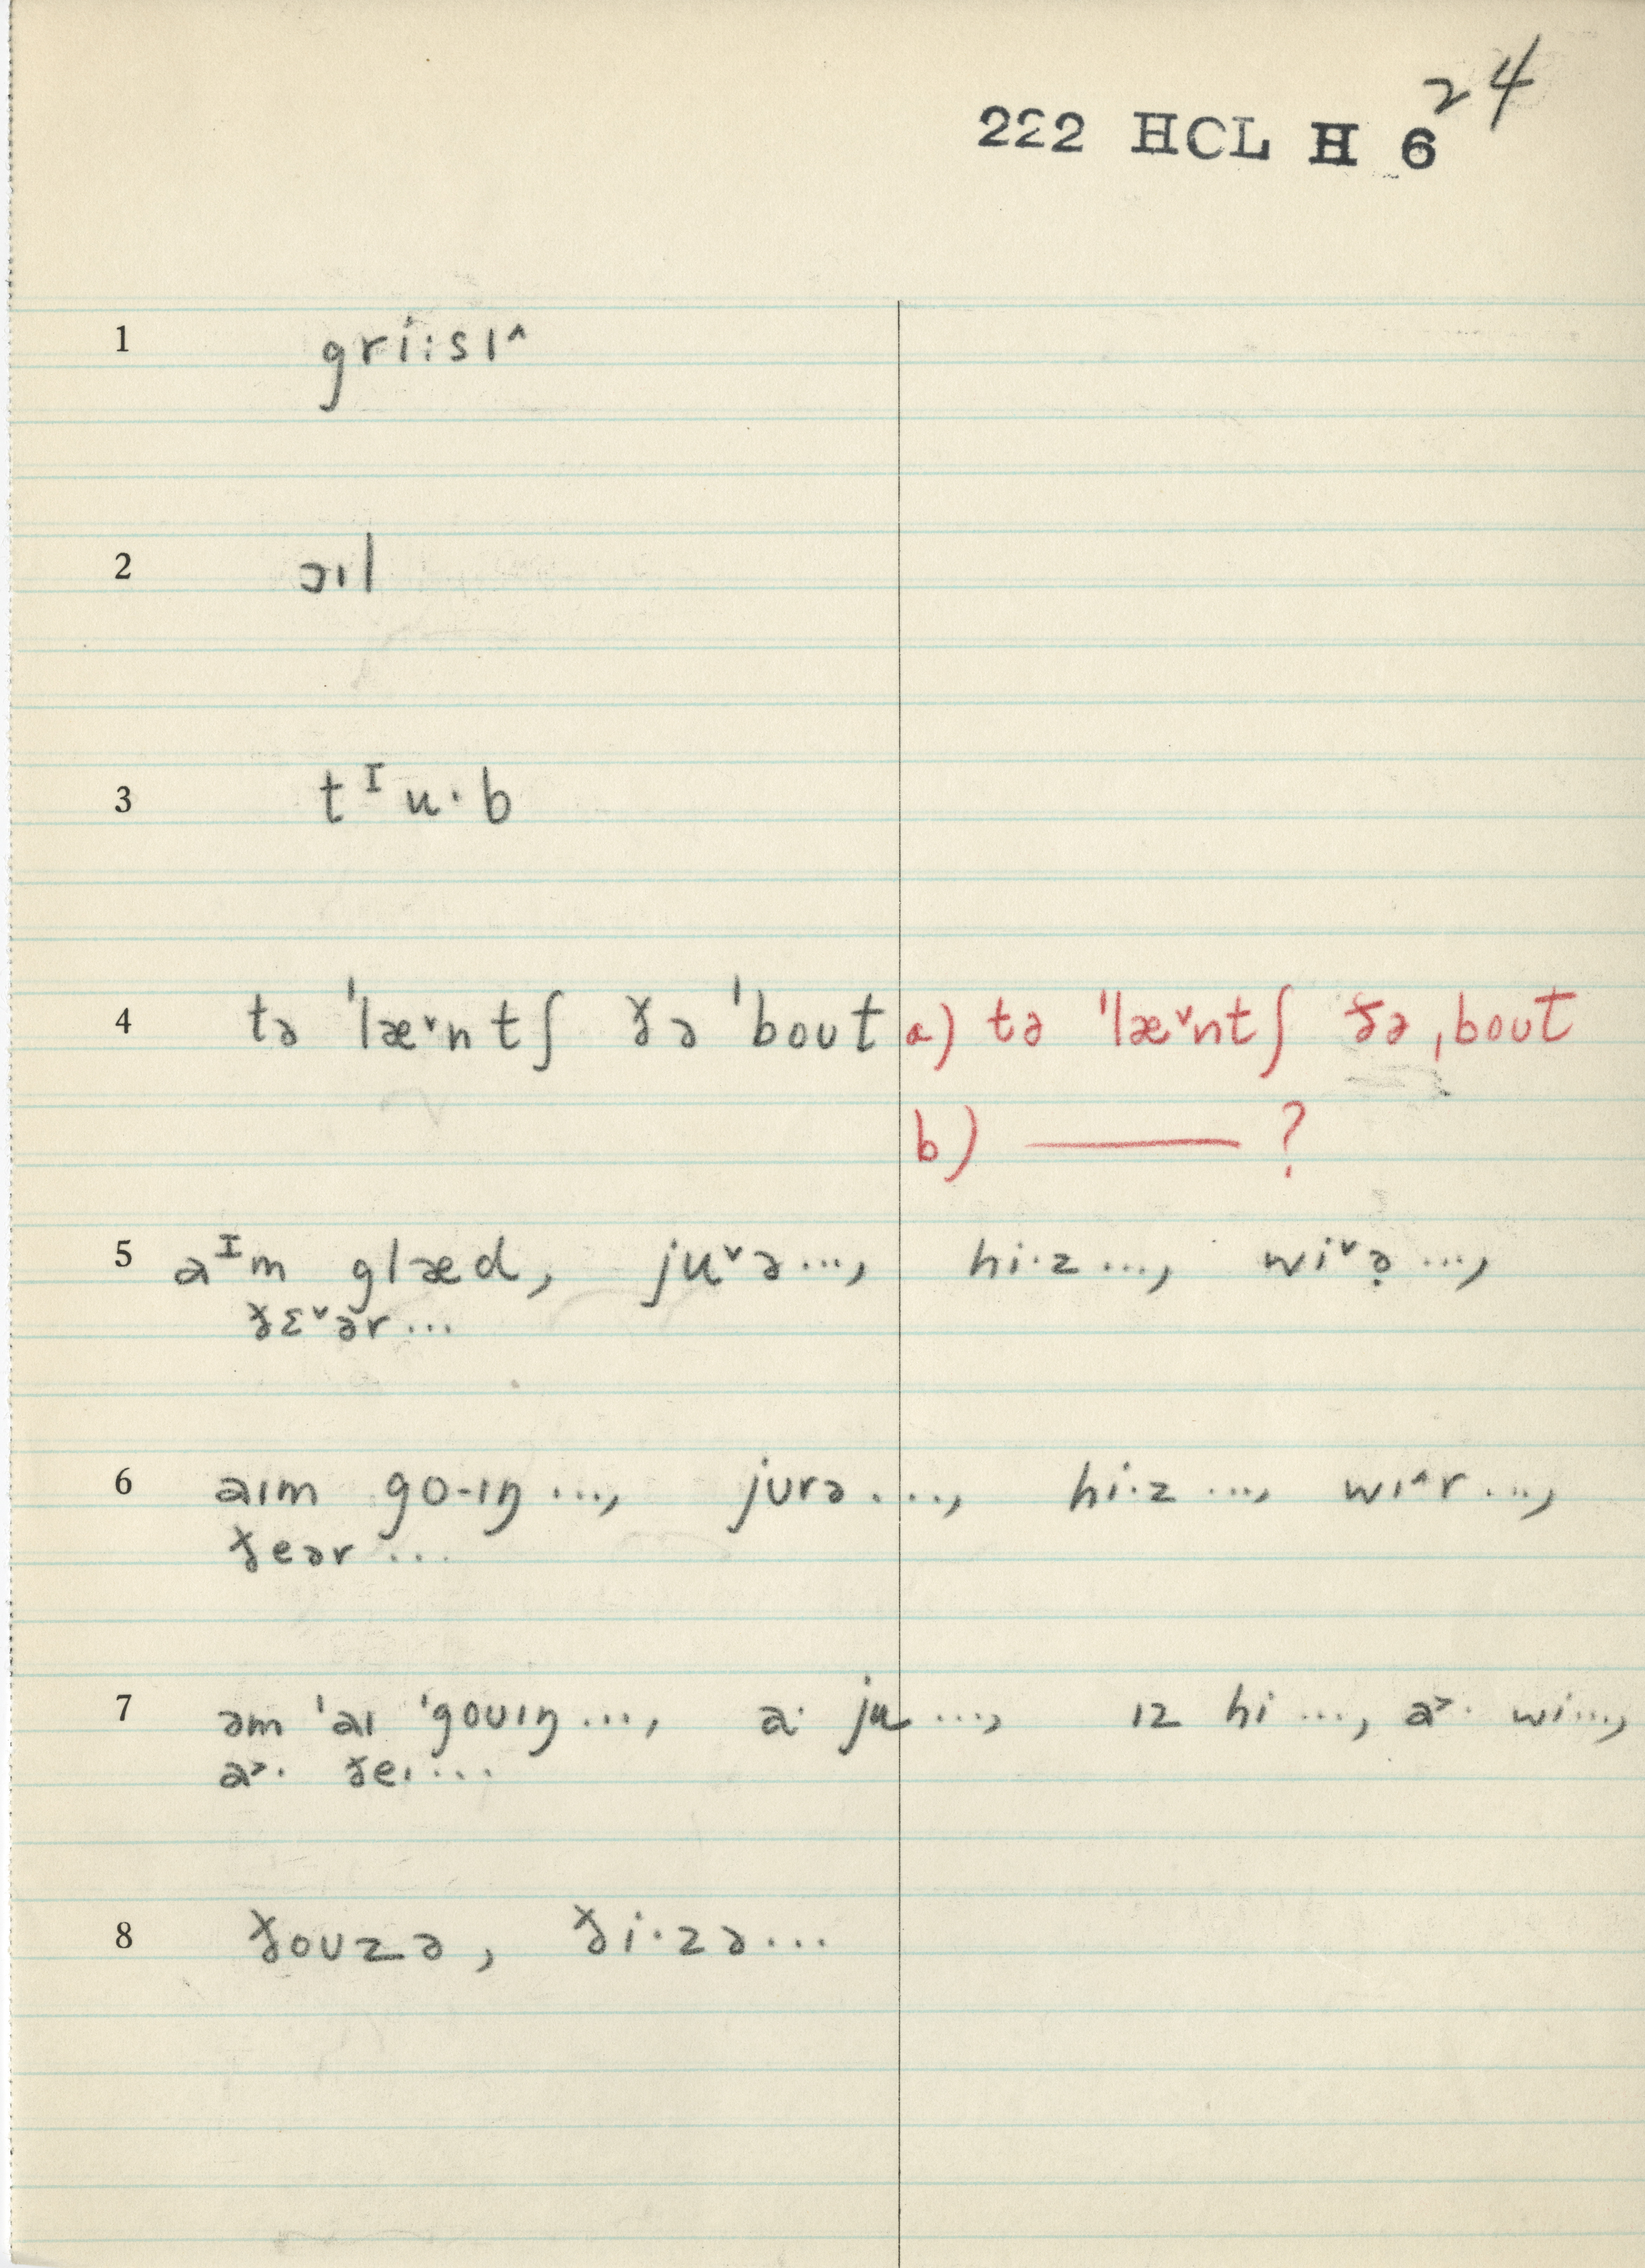 24
222 HCL H 6
1 gri:sɪ^
2 ɔɪl
3 tᴵu·b
4 tə ˈlæ˅ntʃ ðə ˈboʊt a) tə ˈˈlæ˅ntʃ ðə ˌboʊt
b) ——— ?
5 aᴵm glæd, ju˅ə..., hi·z ..., wi˅ə̣ ...,
ðɛ˅ər ...
6 aɪm go-ɪŋ ..., jʊrə ...., hi·z ..., wɪ^r ...,
ðeər ...
7 əm ˈaɪ ˈgoʊɪŋ ..., a· ju ..., ɪz hi ..., a>· wi ...,
a>· ðeɪ ...
8 ðoʊzə, ði·zə...